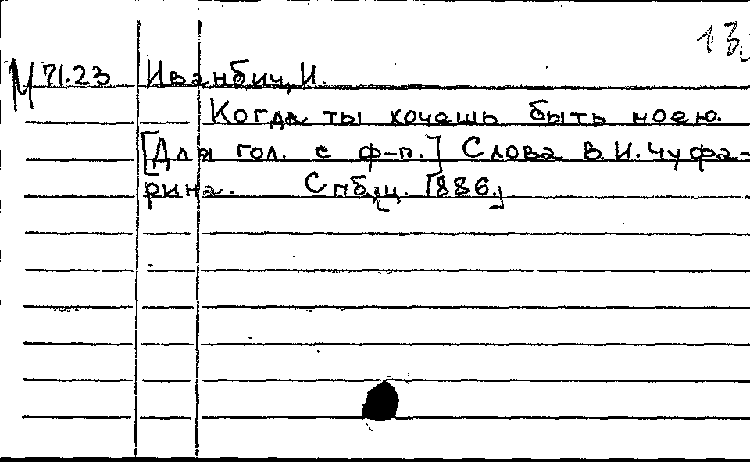 13.
М 71.23 Иванбич, И.
Когда ты хочешь быть моею.
[Для гол. с ф-п.] Слова В.И. Чуфа-
рина. Спб., ц. 1886.